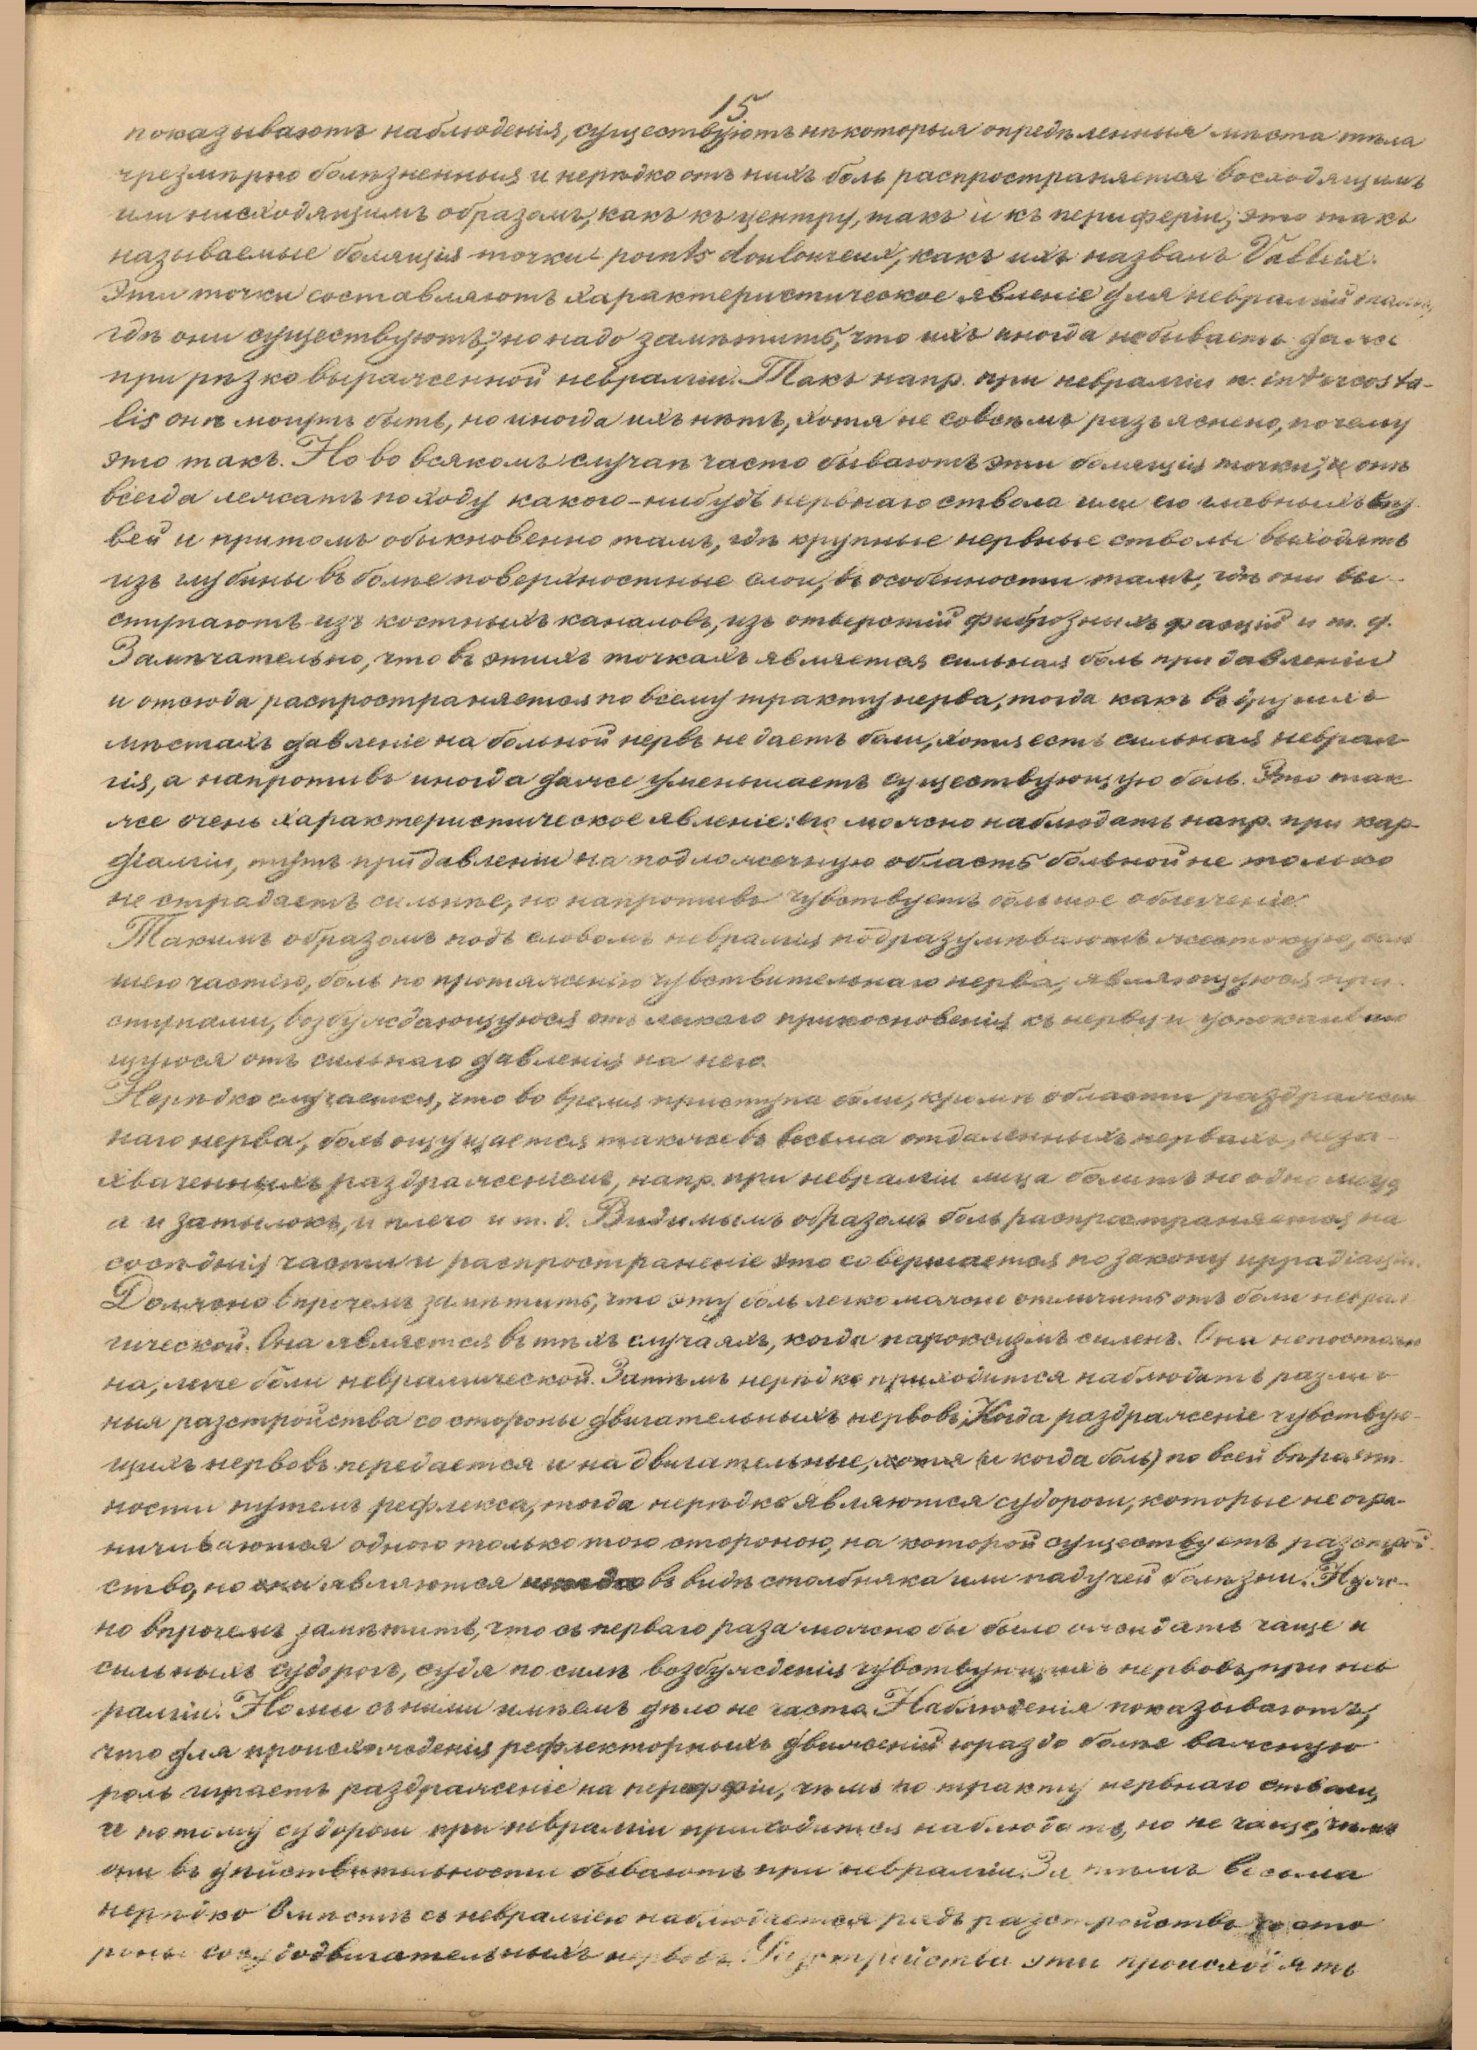 15
показываютъ наблюденія, существуютъ нѣкоторыя опредѣленныя мѣста тѣла
чрезмѣрно болѣзненныя и нерѣдко отъ нихъ боль распространяется восходящимъ
или нисходящимъ образомъ, какъ къ центру, такъ и къ периферіи, это такъ
называемые болящія точки points douloureux, какъ ихъ назвалъ Valleix.
Эти точки составляютъ характеристическое явленіе для невралгій тамъ,
гдѣ они существуютъ; но надо замѣтить, что ихъ иногда не бываетъ даже
при рѣзко выраженной невралгіи. Такъ напр. при невралгіи n. intercosta-
lis онѣ могутъ быть, но иногда ихъ нѣтъ, хотя не совсѣмъ разъяснено, почему
это такъ. Но во всякомъ случаѣ часто бываютъ эти болящія точки, и онѣ
всегда лежатъ по ходу какого-нибудь нервнаго ствола или его главныхъ вѣт
вей и притомъ обыкновенно тамъ, гдѣ крупные нервные стволы выходятъ
изъ глубины въ болѣе поверхностные слои, въ особенности тамъ, гдѣ они вы-
ступаютъ изъ костныхъ каналовъ, изъ отверстій фиброзныхъ фасцій и т. д.
Замѣчательно, что въ этихъ точкахъ является сильная боль при давленіи
и отсюда распространяется по всему тракту нерва, тогда какъ въ другихъ
мѣстахъ давленіе на больной нервъ не даетъ боли, хотя есть сильная неврал-
гія, а напротивъ иногда даже уменьшаетъ существующую боль. Это так
же очень характеристическое явленіе: его можно наблюдать напр. при кар-
діалгіи, тутъ при давленіи на подложечную область больной не только
не страдаетъ сильнѣе, но напротивъ чувствуетъ большое облегченіе.
Такимъ образомъ подъ словомъ невралгія подразумѣваютъ жестокую, боль
шею частію, боль по протяженію чувствительнаго нерва, являющуюся при-
ступами, возбуждающуюся отъ легкаго прикосновенія къ нерву и успокаиваю
щуюся отъ сильнаго давленія на него.
Нерѣдко случается, что во время приступа боли, кромѣ области раздражен
наго нерва, боль ощущается также въ весьма отдаленныхъ нервахъ, неза-
хваченныхъ раздраженіемъ, напр. при невралгіи лица болитъ не одно лицо,
а и затылокъ, и плечо и т. д. Видимымъ образомъ боль распространяется на
сосѣднія части и распространеніе это совершается по закону иррадіаціи.
Должно впрочемъ замѣтить, что эту боль легко можно отличить отъ боли неврал
гической. Она является въ тѣхъ случаяхъ, когда пароксизмъ силенъ. Она непостоян
на, легче боли невралгической. Затѣмъ нерѣдко приходится наблюдать различ
ныя разстройства со стороны двигательныхъ нервовъ. Когда раздраженіе чувствую-
щихъ нервовъ передается и на двигательные, хотя (и когда боль) по всей вѣроят-
ности путемъ рефлекса, тогда нерѣдко являются судороги, которые не огра-
ничиваются одною только тою стороною, на которой существуетъ разстрой-
ство, но являются въ видѣ столбняка или падучей болѣзни. Нуж-
но впрочемъ замѣтить, что съ перваго раза можно бы было ожидать чаще и
сильныхъ судорогъ, судя по силѣ возбужденія чувствующихъ нервовъ, при нев
ралгіи. Но мы съ ними имѣемъ дѣло не часто. Наблюденія показываютъ,
что для происхожденія рефлекторныхъ движеній гораздо болѣе важную
роль играетъ раздраженіе на периферіи, чѣмъ по тракту нервнаго ствола,
и потому судороги при невралгіи приходится наблюдать, но не чаще, чѣмъ
они въ дѣйствительности бываютъ при невралгіи. За тѣмъ весьма
нерѣдко вмѣстѣ съ невралгіею наблюдается рядъ разстройствъ со сто
роны сосудодвигательныхъ нервовъ. Разстройства эти происходятъ